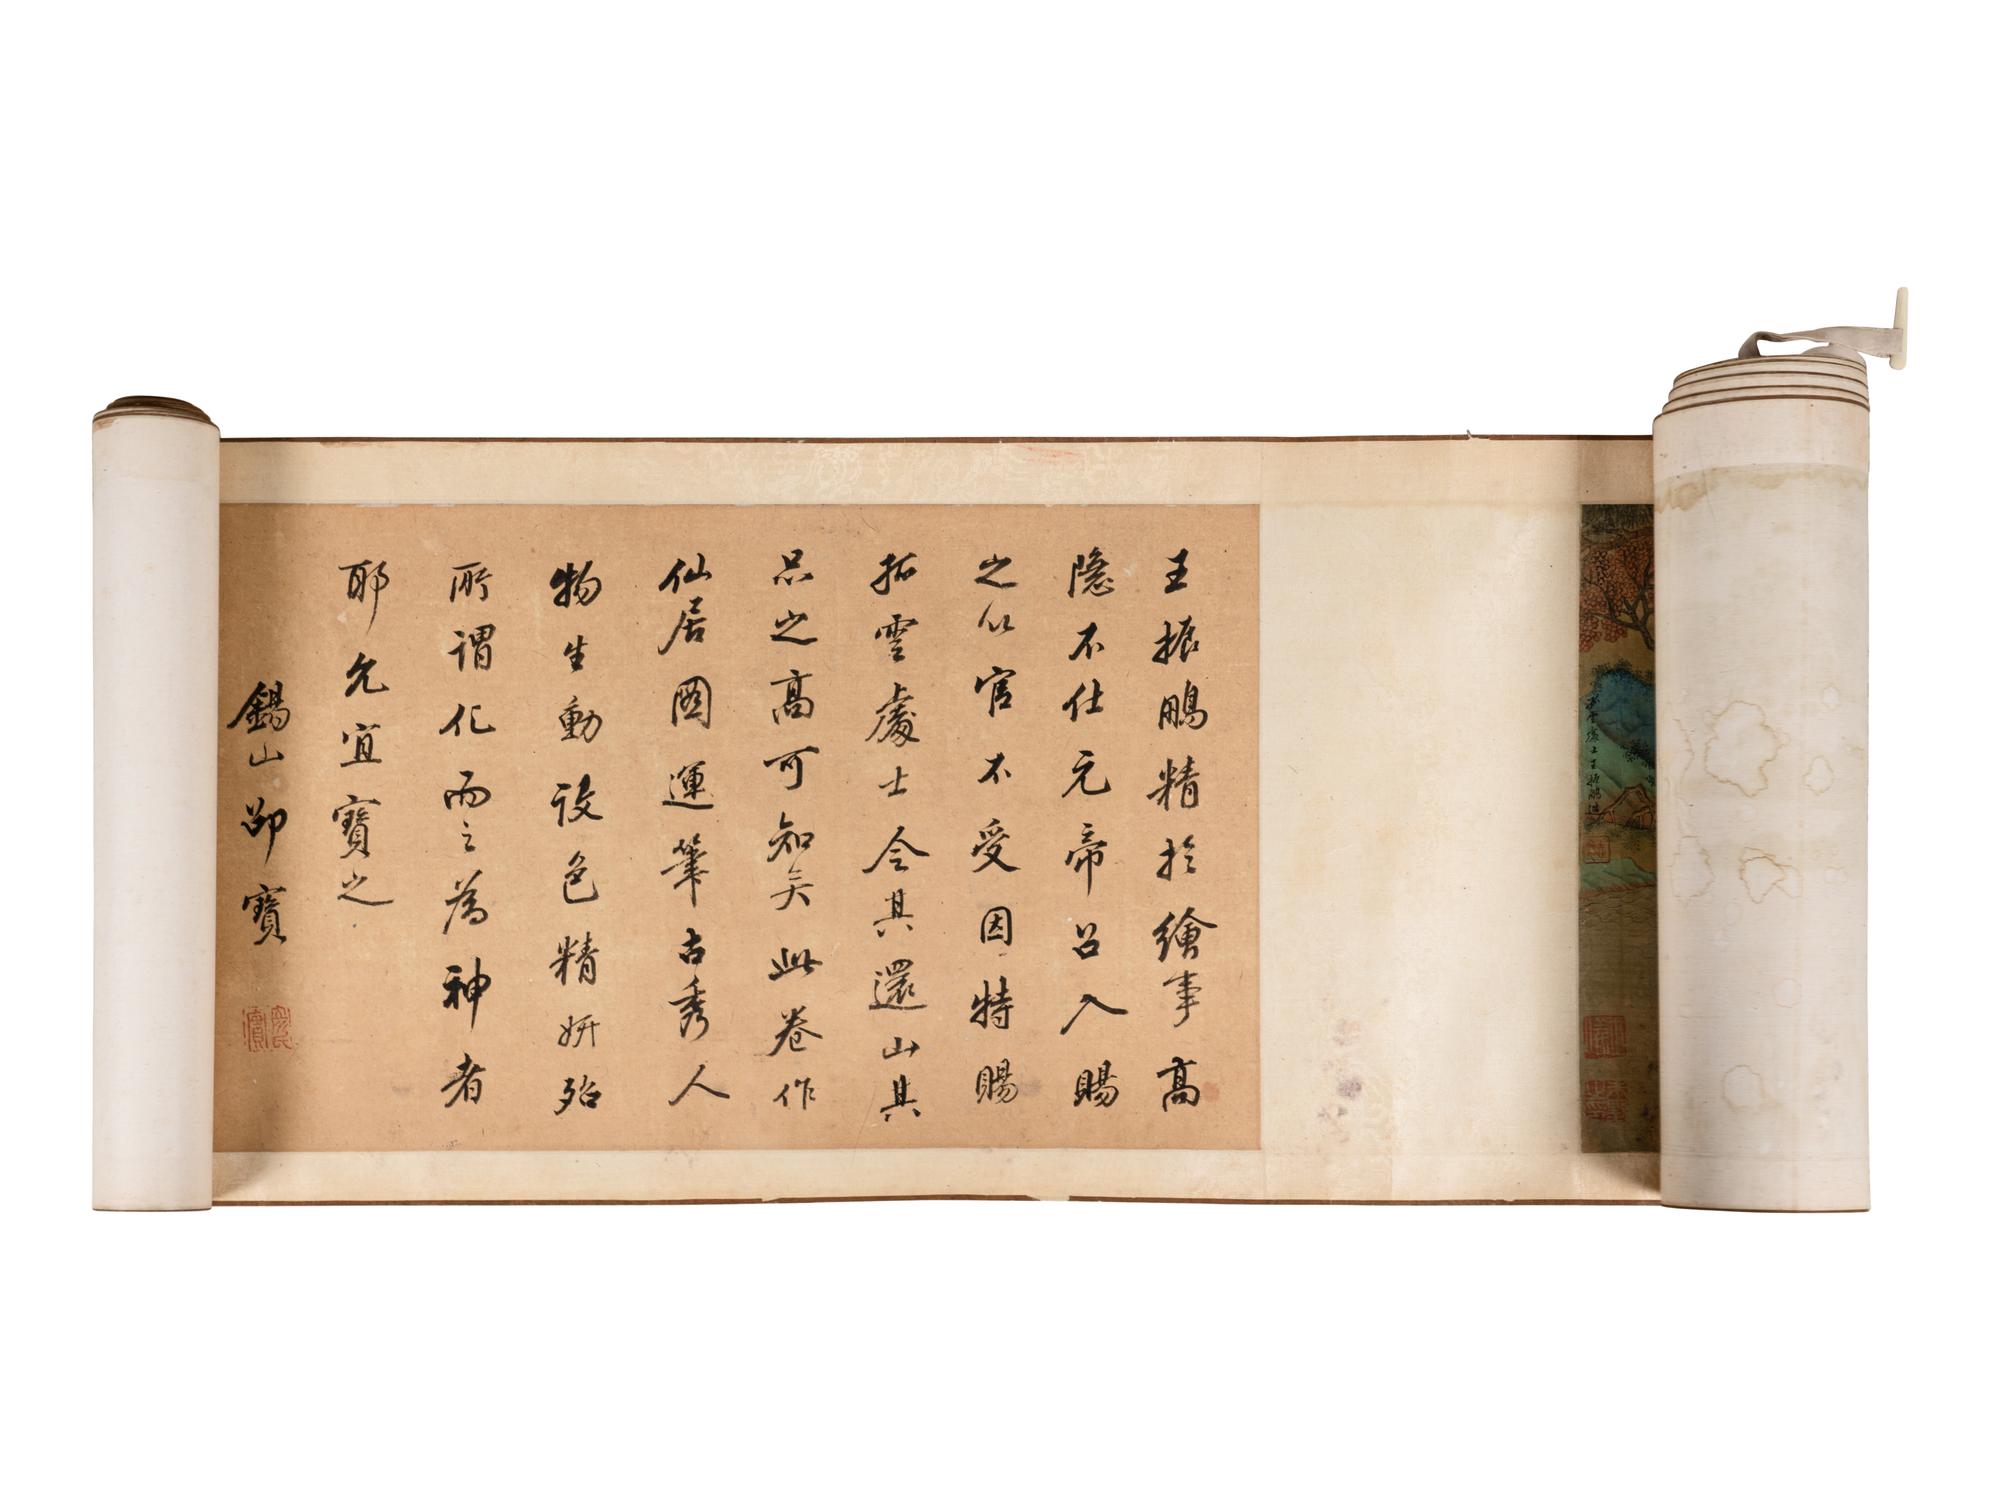 拓雲處士王振鵬造
王振鵬精於繪事高
隱不仕元帝召入賜
之以官不受因特賜
拓雲處士令其還山其
品之高可知矣此卷作
仙居圖運筆古秀人
物生動設色精妍殆
所謂化而之為神者
耶允宜寶之
錫山邵寶